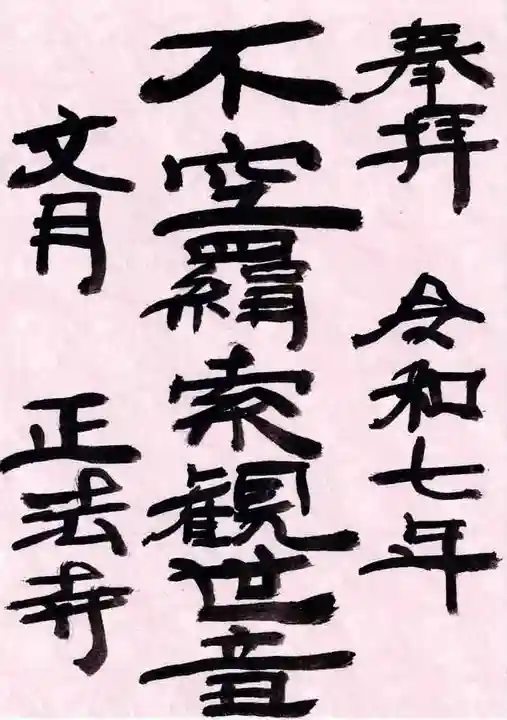 奉拝 令和七年
不空羂索観世音
文月 正法寺